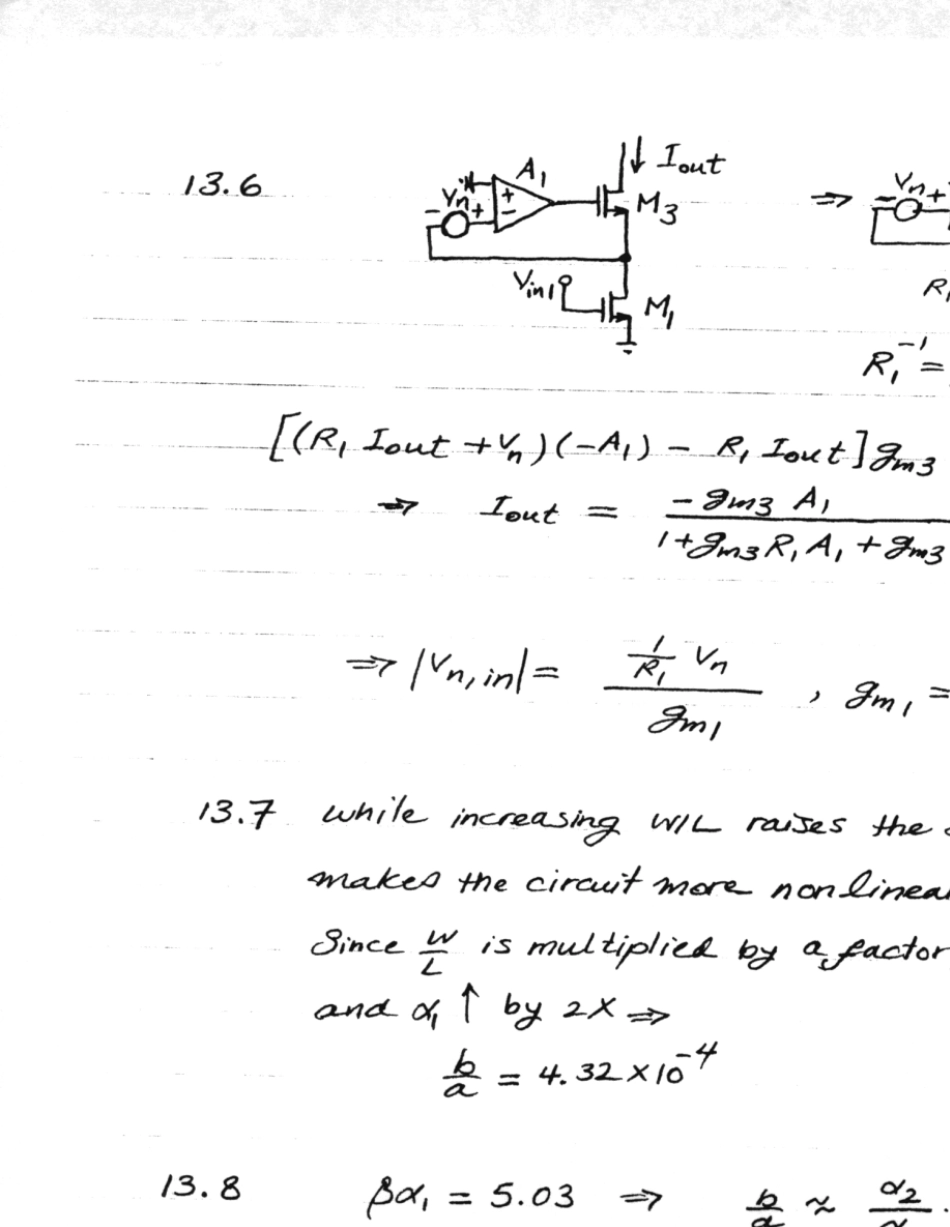 13.6
A₁
Iout
Vn
+
−
- +
M₃
⇒
Vn
- +
Vin1
M₁
R₁⁻¹ =
[(R₁ Iout + Vn)(−A₁) − R₁ Iout] gm3
⇒ Iout = −gm3 A₁ / 1 + gm3 R₁ A₁ + gm3
⇒ |Vn,in| = (1/R₁) Vn / gm1 , gm1 =
13.7 while increasing W/L raises the
makes the circuit more nonlinear
Since W/L is multiplied by a factor
and α₁ ↑ by 2X ⇒
b/a = 4.32 × 10⁻⁴
13.8 βα₁ = 5.03 ⇒ b/a ≈ α₂